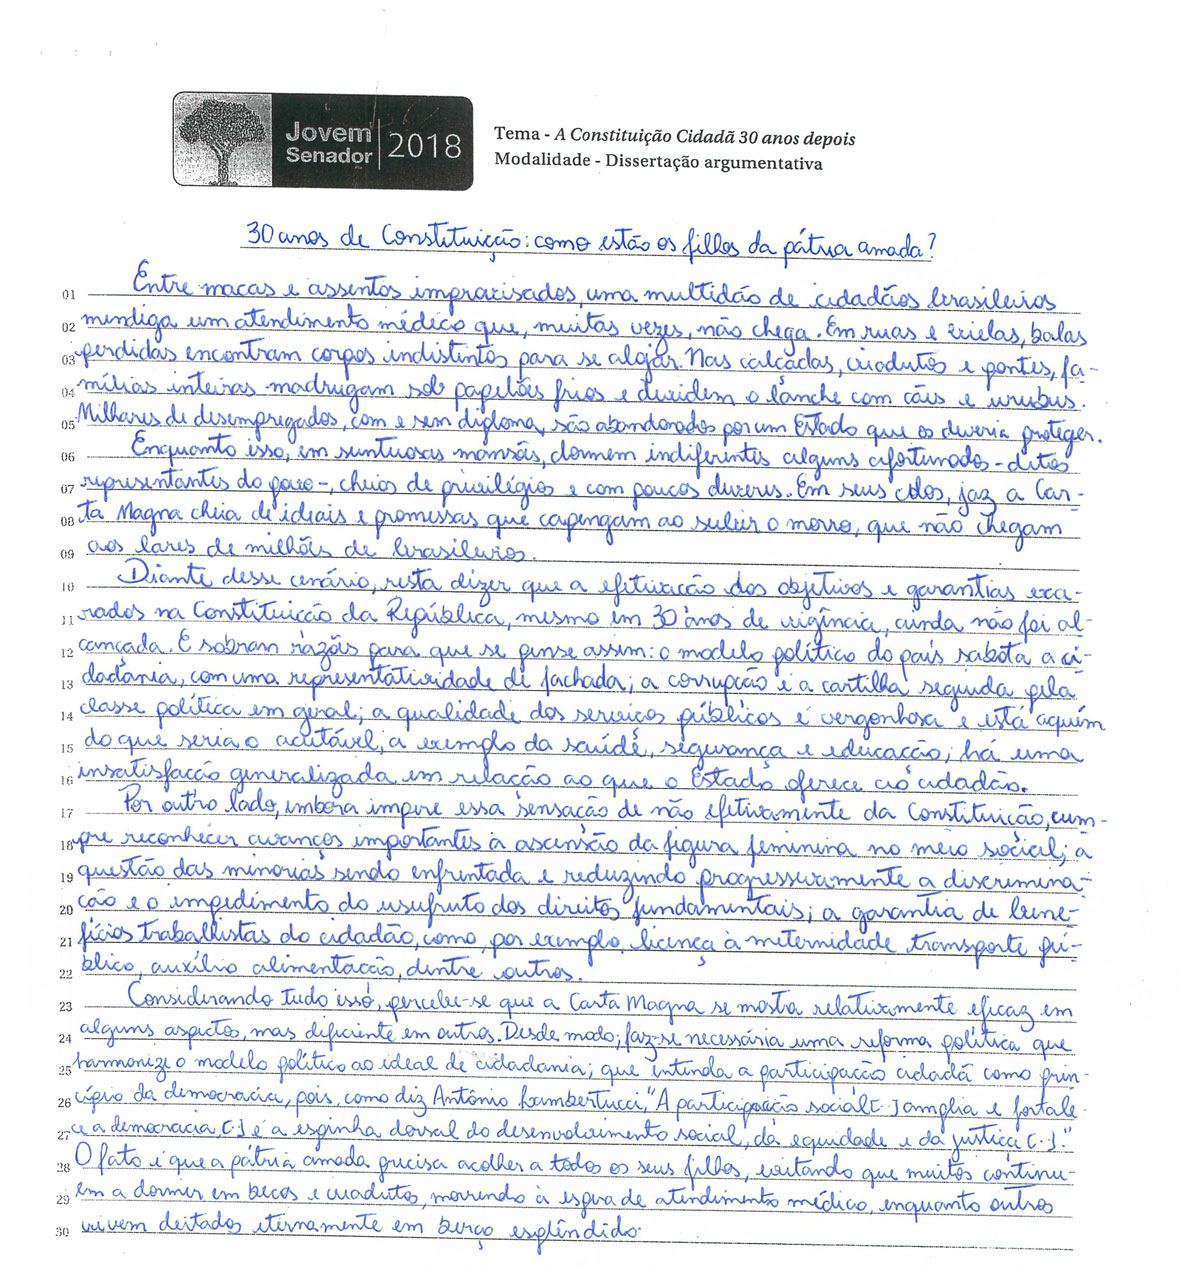 Jovem
Senador
2018
Tema - A Constituição Cidadã 30 anos depois
Modalidade - Dissertação argumentativa
30 anos de Constituição: como estão os filhos da pátria amada?
01 Entre macas e assentos improvisados, uma multidão de cidadãos brasileiros
02 mendiga um atendimento médico que, muitas vezes, não chega. Em ruas e vielas, balas
03 perdidas encontram corpos indistintos para se alojar. Nas calçadas, viadutos e pontes, fa-
04 mílias inteiras madrugam sob papelões frios e dividem o lanche com cães e urubus.
05 Milhares de desempregados, com e sem diploma, são abandonados por um Estado que os deveria proteger.
06 Enquanto isso, em suntuosas mansões, dormem indiferentes alguns afortunados - ditos
07 representantes do povo -, cheios de privilégios e com poucos deveres. Em seus colos, jaz a Car-
08 ta Magna cheia de ideais e promessas que capengam ao subir o morro, que não chegam
09 aos lares de milhões de brasileiros.
10 Diante desse cenário, resta dizer que a efetivação dos objetivos e garantias exa-
11 rados na Constituição da República, mesmo em 30 anos de vigência, ainda não foi al-
12 cançada. E sobram razões para que se pense assim: o modelo político do país sabota a ci-
13 dadania, com uma representatividade de fachada; a corrupção é a cartilha seguida pela
14 classe política em geral; a qualidade dos serviços públicos é vergonhosa e está aquém
15 do que seria o aceitável, a exemplo da saúde, segurança e educação; há uma
16 insatisfação generalizada em relação ao que o Estado oferece ao cidadão.
17 Por outro lado, embora impere essa sensação de não efetivamente da Constituição, cum-
18 pre reconhecer avanços importantes à ascensão da figura feminina no meio social; a
19 questão das minorias sendo enfrentada e reduzindo progressivamente a discrimina-
20 ção e o impedimento do usufruto dos direitos fundamentais; a garantia de bene-
21 fícios trabalhistas do cidadão, como, por exemplo, licença à meternidade transporte pú-
22 blico, auxílio alimentação, dentre outros.
23 Considerando tudo isso, percebe-se que a Carta Magna se mostra relativamente eficaz em
24 alguns aspectos, mas deficiente em outros. Desde modo, faz-se necessária uma reforma política que
25 harmonize o modelo político ao ideal de cidadania; que entenda a participação cidadã como prin-
26 cípio da democracia, pois, como diz Antônio Lambertucci, "A participação social [...] amplia e fortale-
27 ce a democracia, [...] é a espinha dorsal do desenvolvimento social, da equidade e da justiça [...]."
28 O fato é que a pátria amada precisa acolher a todos os seus filhos, evitando que muitos continu-
29 em a dormir em becos e viadutos, morrendo à espera de atendimento médico, enquanto outros
30 vivem deitados eternamente em berço esplêndido.